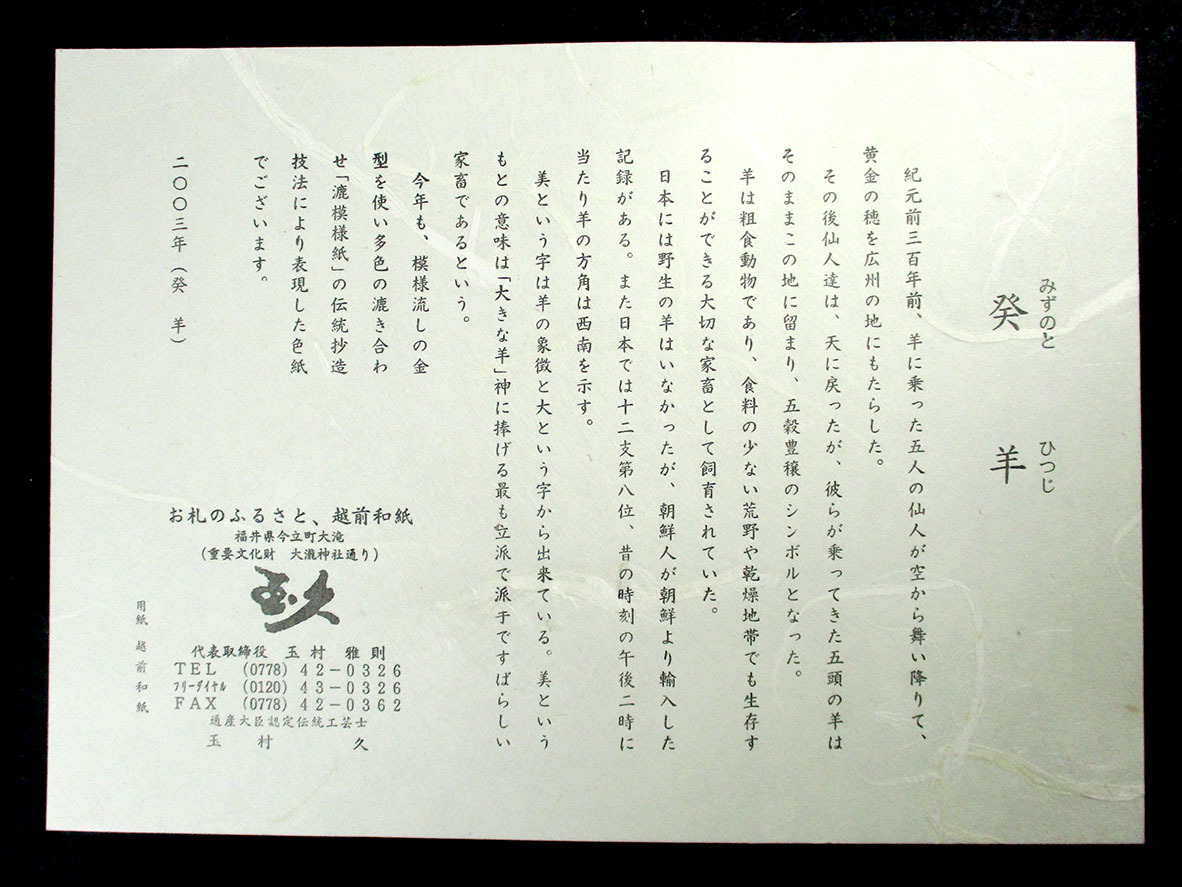 みずのと　ひつじ
癸　羊
紀元前三百年前、羊に乗った五人の仙人が空から舞い降りて、
黄金の穂を広州の地にもたらした。
その後仙人達は、天に戻ったが、彼らが乗ってきた五頭の羊は
そのままこの地に留まり、五穀豊穣のシンボルとなった。
羊は粗食動物であり、食料の少ない荒野や乾燥地帯でも生存す
ることができる大切な家畜として飼育されていた。
日本には野生の羊はいなかったが、朝鮮人が朝鮮より輸入した
記録がある。また日本では十二支第八位、昔の時刻の午後二時に
当たり羊の方角は西南を示す。
美という字は羊の象徴と大という字から出来ている。美という
もとの意味は「大きな羊」神に捧げる最も立派で派手ですばらしい
家畜であるという。
今年も、模様流しの金
型を使い多色の漉き合わ
せ「漉模様紙」の伝統抄造
技法により表現した色紙
でございます。
二〇〇三年（癸　羊）
お札のふるさと、越前和紙
福井県今立町大滝
（重要文化財　大瀧神社通り）
玉久
代表取締役　玉村　雅則
TEL　(0778) 42－0326
ﾌﾘｰﾀﾞｲﾔﾙ　(0120) 43－0326
FAX　(0778) 42－0362
通産大臣認定伝統工芸士
玉村　久
用紙　越前和紙